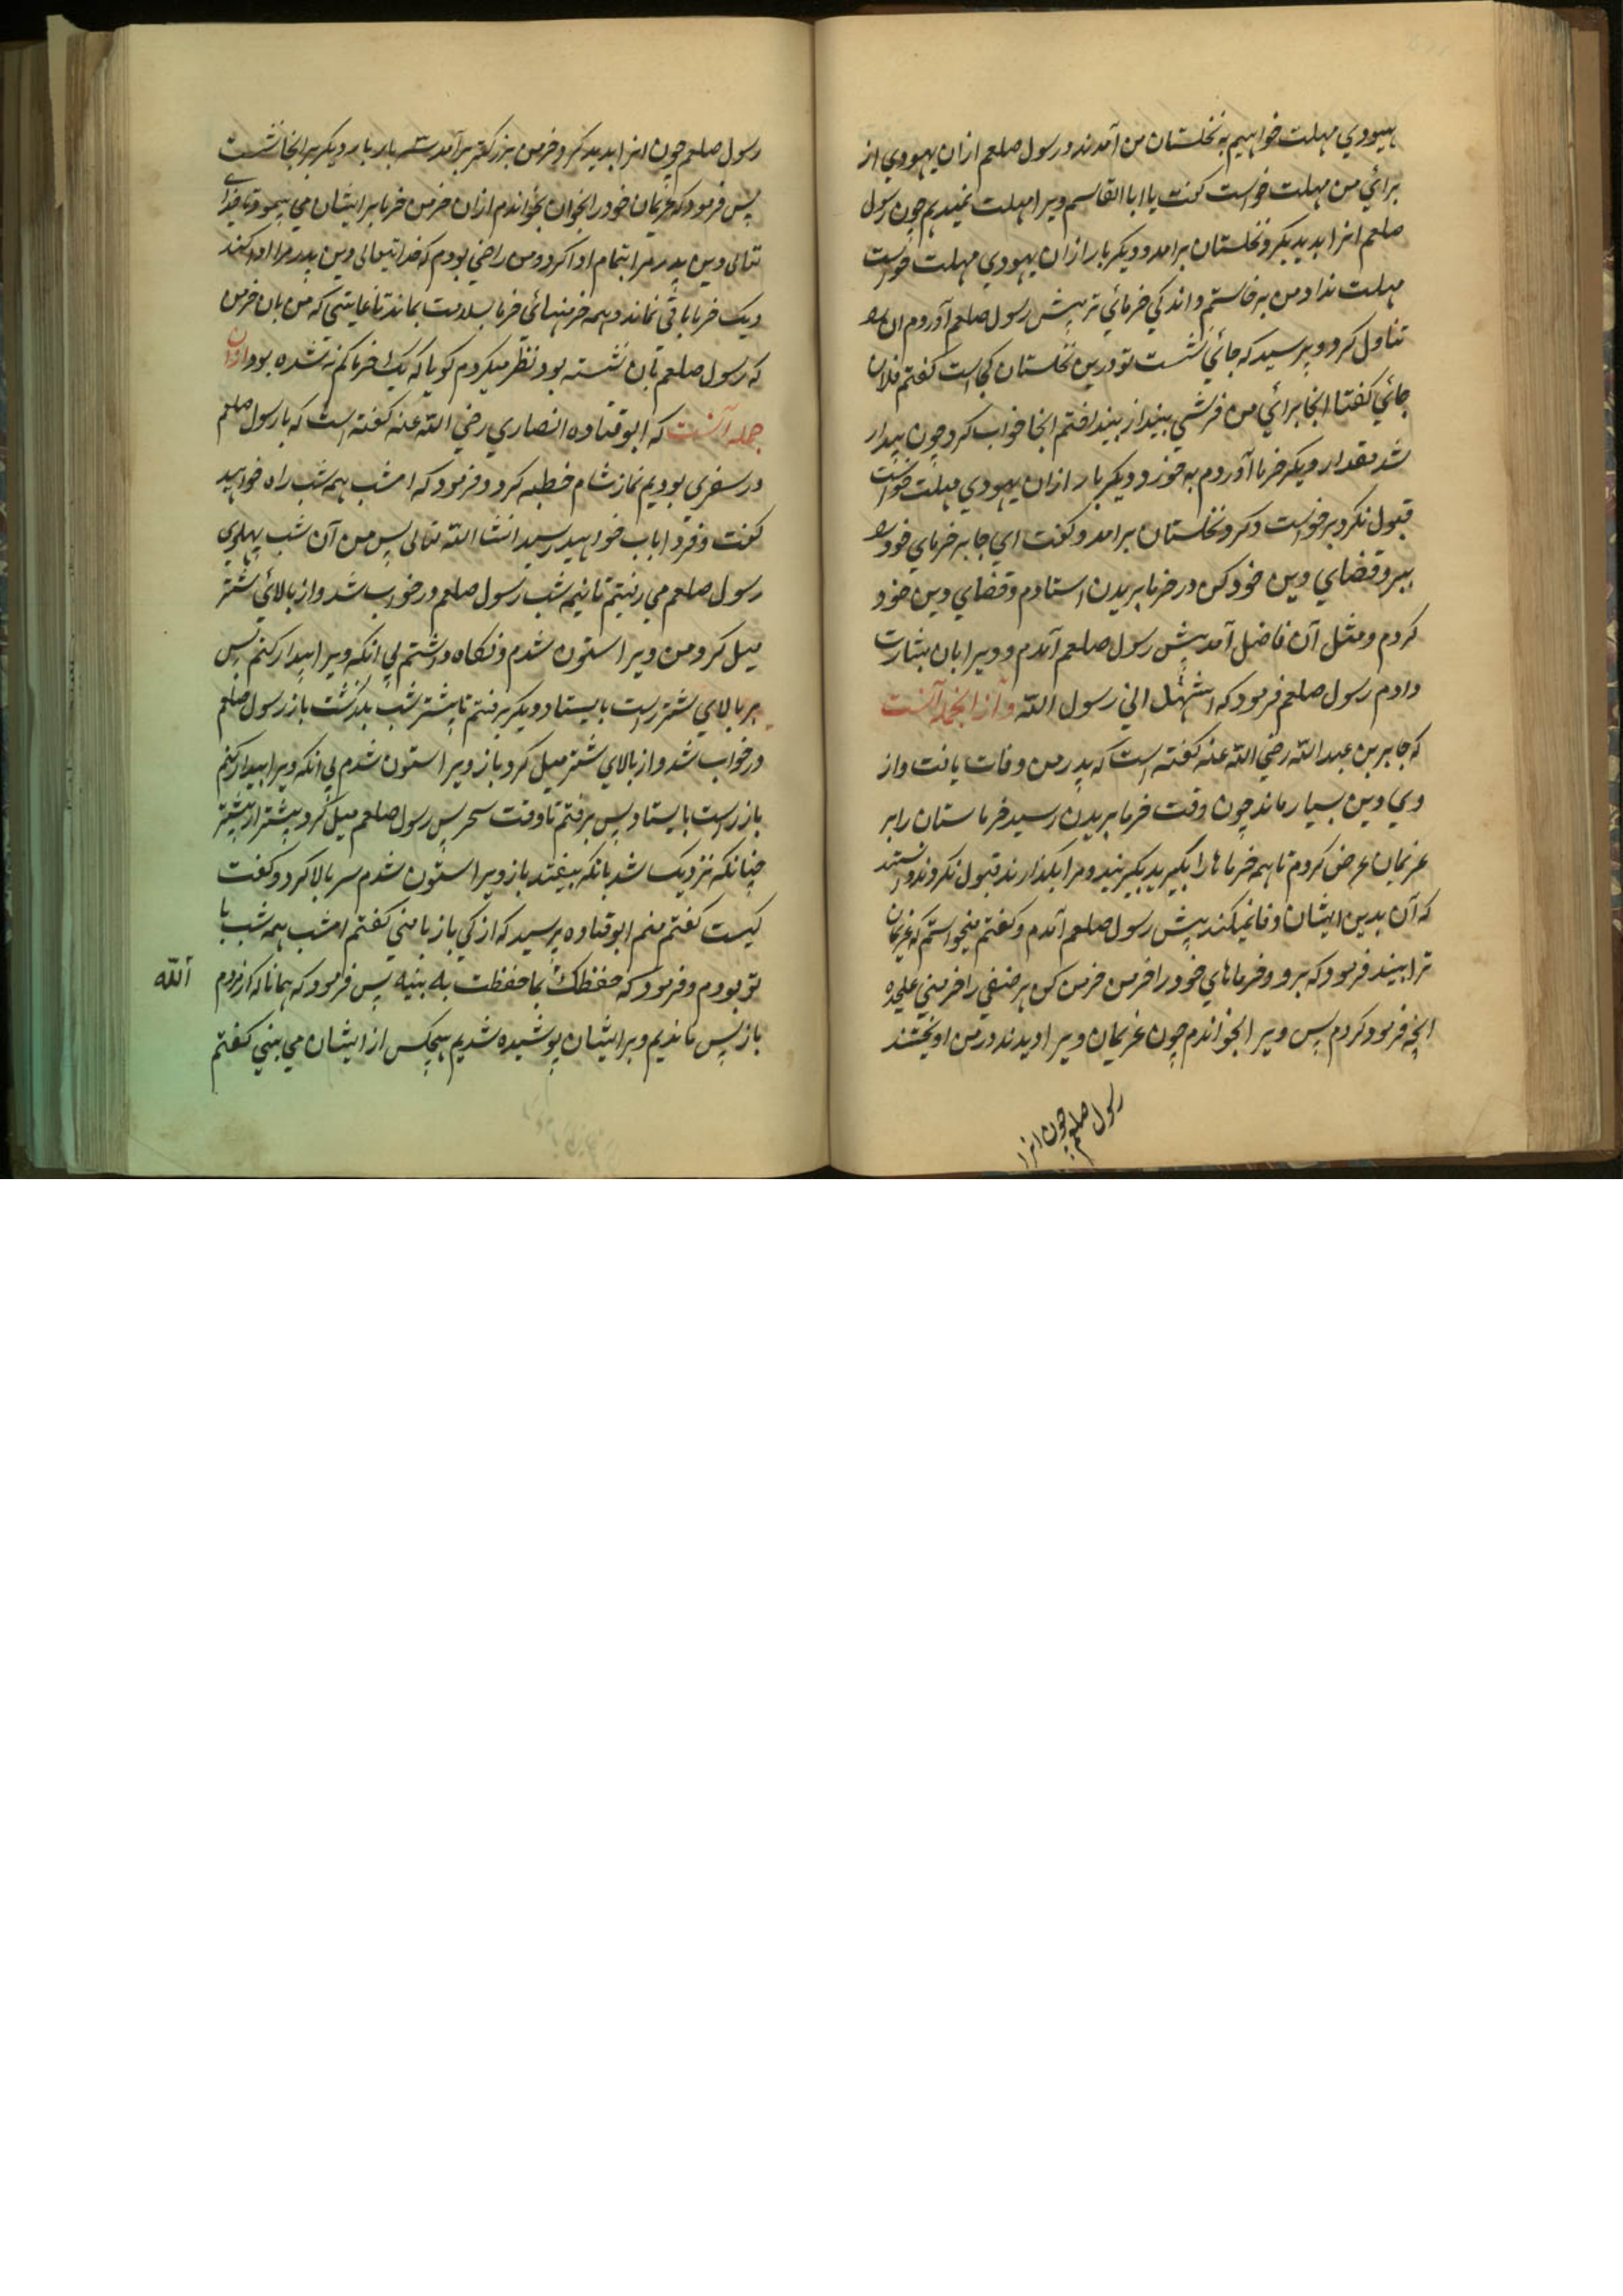 یهودي مهلت خواهیم به نخلستان من آمدند و رسول صلعم ازان یهودي از
برائي من مهلت خواست گفت یا ابا القاسم ویرا مهلت نمیدهم چون رسول
صلعم انرا بدید بگرد نخلستان برامد و دیگر بار ازان یهودي مهلت خواست
مهلت نداد من برخاستم و اندکي خرمائي تر پیش رسول صلعم آوردم ان را
تناول کرد و پرسید که جائي نشست تو درین نخلستان کجاست گفتم فلان
جائي گفتا انجا برائي من فرشي بینداز بینداختم انجا خواب کرد چون بیدار
شد مقدار دیگر خرما آوردم بخورد و دیگر بار ازان یهودي مهلت خواست
قبول نکرد برخواست و گرد نخلستان برامد و گفت اي جابر خرماي خود را
ببر و قضاي دین خود کن در خرما بریدن استادم و قضاي دین خود
کردم و مثل آن فاضل آمد پیش رسول صلعم آمدم و ویرا بان بشارت
دادم رسول صلعم فرمود که اشهد اني رسول الله و از انجمله آنست
که جابر بن عبد الله رضي الله عنه گفته است که پدر من وفات یافت و از
وي دین بسیار ماند چون وقت خرما بریدن رسید خرماستان را بر
غریمان عرض کردم تا همه خرماها را بگیرید بگیرنید و مرا بگذارند قبول نکردند دانستند
که آن بدین ایشان وفا نمیکند پیش رسول صلعم آمدم و گفتم میخواستم که غریمان
ترا ببیند فرمود که برو و خرماهاي خود را خرمن خرمن کن هر صنفي را خرمني علیحده
انچه فرمود کردم پس ویرا بخواندم چون غریمان ویرا دیدند در من اویختند
رسول صلعم چون انرا
رسول صلعم چون انرا بدید گرد خرمن بزرگتر برآمد سه بار بار دیگر بر انجا نشست
پس فرمود که غریمان خود را بخوان بخواندم ازان خرمن خرما بر ایشان مي پیمود تا خداي
تعالی دین پدر مرا بتمام ادا کرد و من راضي بودم که خدایتعالی دین پدر مرا ادا کند
و یک خرما باقي نماند و همه خرمنهائي خرما بسلامت بماند تا غایتي که من بان خرمن
که رسول صلعم بآن نشسته بود نظر میکردم گویا که یک خرما کم نه شده بود و ازان
جمله آنست که ابو قتاده انصاري رضي الله عنه گفته است که با رسول صلعم
در سفري بودیم نماز شام خطبه کرد و فرمود که امشب همه شب راه خواهید
گفت و فردا باب خواهید رسید انشا الله تعالی پس من آن شب پهلوي
رسول صلعم مي رفتم تا نیمه شب رسول صلعم در خواب شد و از بالائي شتر
میل کرد من ویرا استون شدم و نگاه داشتم بي انکه ویرا بیدار کنم پس
بر بالاي شتر راست بایستاد و دیگر برفتم تا بیشتر شب بگذشت باز رسول صلعم
در خواب شد و از بالاي شتر میل کرد باز ویرا استون شدم بي انکه ویرا بیدار کنم
باز راست بایستاد پس برفتم تا وقت سحر پس رسول صلعم میل کرد بیشتر از پیشتر
چنانکه نزدیک شد بانکه بیفتد باز ویرا استون شدم سر بالا کرد و گفت
کیست گفتم منم ابو قتاده پرسید که از کي باز با مني گفتم امشب همه شب با
تو بودم و فرمود که حفظک بما حفظت به بنیه پس فرمود که همانا که از مردم
الله
باز پس ماندیم و بر ایشان پوشیده شدیم هیچکس از ایشان مي بیني گفتم